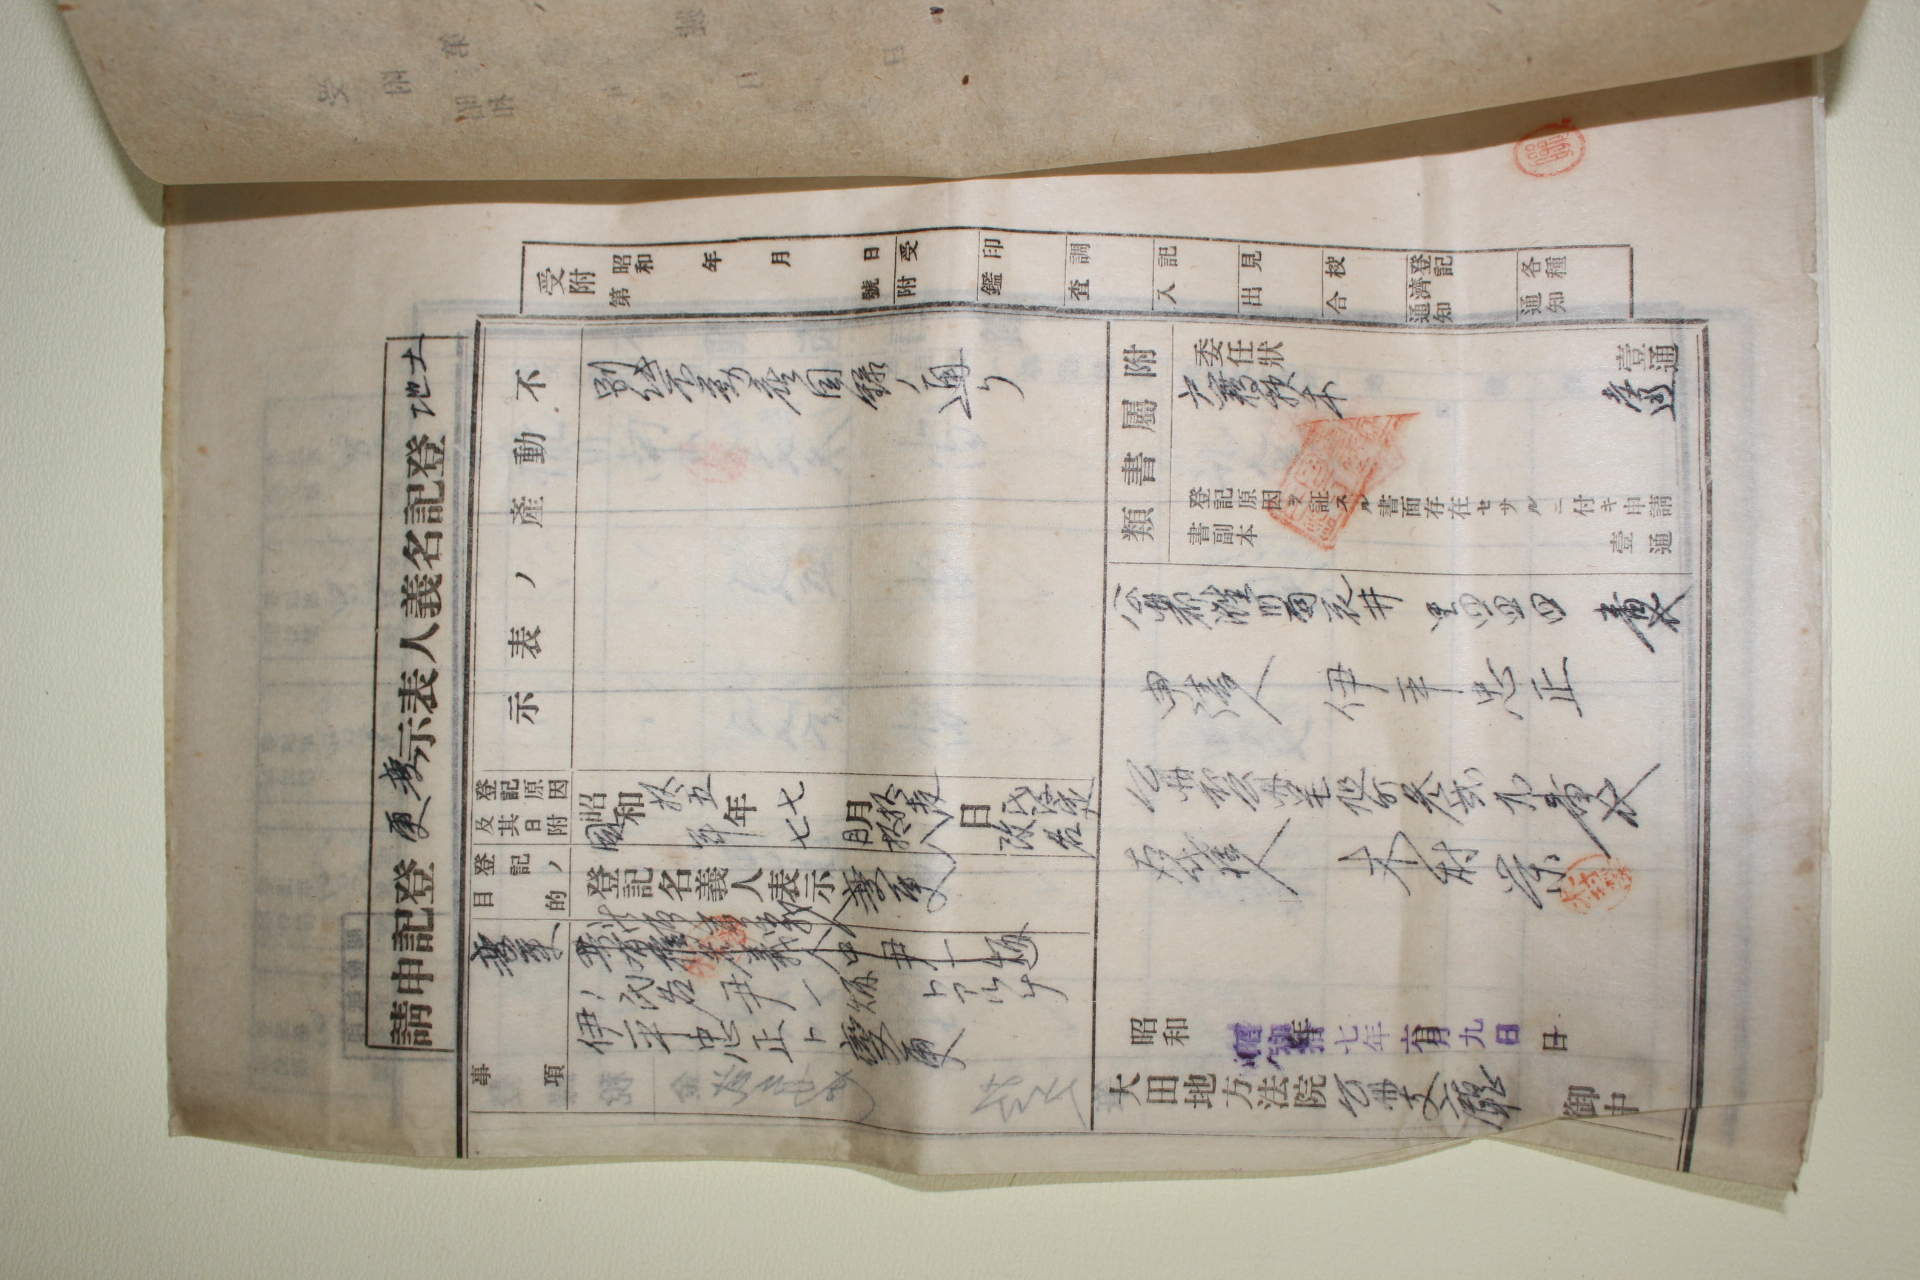 土地登記名義人表示変更登記申請
受附 昭和 年 月 日
第 號
受附
印鑑
調査
記入
見出
校合
登記濟通知
各種通知
不動産ノ表示
別紙不動産目録ノ通リ
登記原因及其日附
昭和拾五年七月拾壱日氏設定
同年七月拾八日改名
登記ノ目的
登記名義人表示変更
変更
事項
共有権名義人中尹一炳
ノ氏名尹一炳トアルヲ
伊平忠正ト変更
附屬書類
委任狀 壹通
戸籍抄本 壱通
登記原因ヲ証スル書面存在セサルニ付キ申請書副本 壹通
公州郡灘川面 里四四四番地
申請人 伊平忠正
公州郡公州邑旭町参弐九番地
右代理人 木村榮
昭和 年 月 日
昭和拾七年六月九日
大田地方法院公州支廳 御中